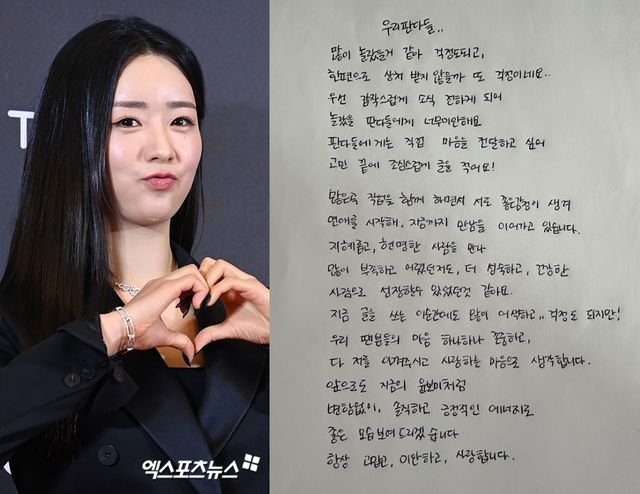 T
엑스포츠뉴스
우리판다들..
많이 놀랐을거 같아 걱정도되고,
한편으로 상처 받지 않을까 또 걱정이네요..
우선 갑작스럽게 소식 전하게 되어
놀랐을 판다들에게 너무미안해요
판다들에게는 직접 마음을 전달하고 싶어
고민 끝에 조심스럽게 글을 적어요!
많은곡 작업을 함께 하면서 서로 좋은감정이 생겨
연애를 시작해, 지금까지 만남을 이어가고 있습니다.
지혜롭고, 현명한 사람을 만나
많이 부족하고 어렸던저도, 더 성숙하고, 건강한
사람으로 성장할수 있었던것 같아요.
지금 글을 쓰는 이순간에도 많이 어색하고.. 걱정도 되지만!
우리 팬분들의 마음 하나하나 존중하고,
다 저를 아껴주시고 사랑하는 마음으로 생각합니다.
앞으로도 지금의 윤보미처럼
변함없이, 솔직하고 긍정적인 에너지로
좋은 모습보여드리겠습니다
항상 고맙고, 미안하고, 사랑합니다.